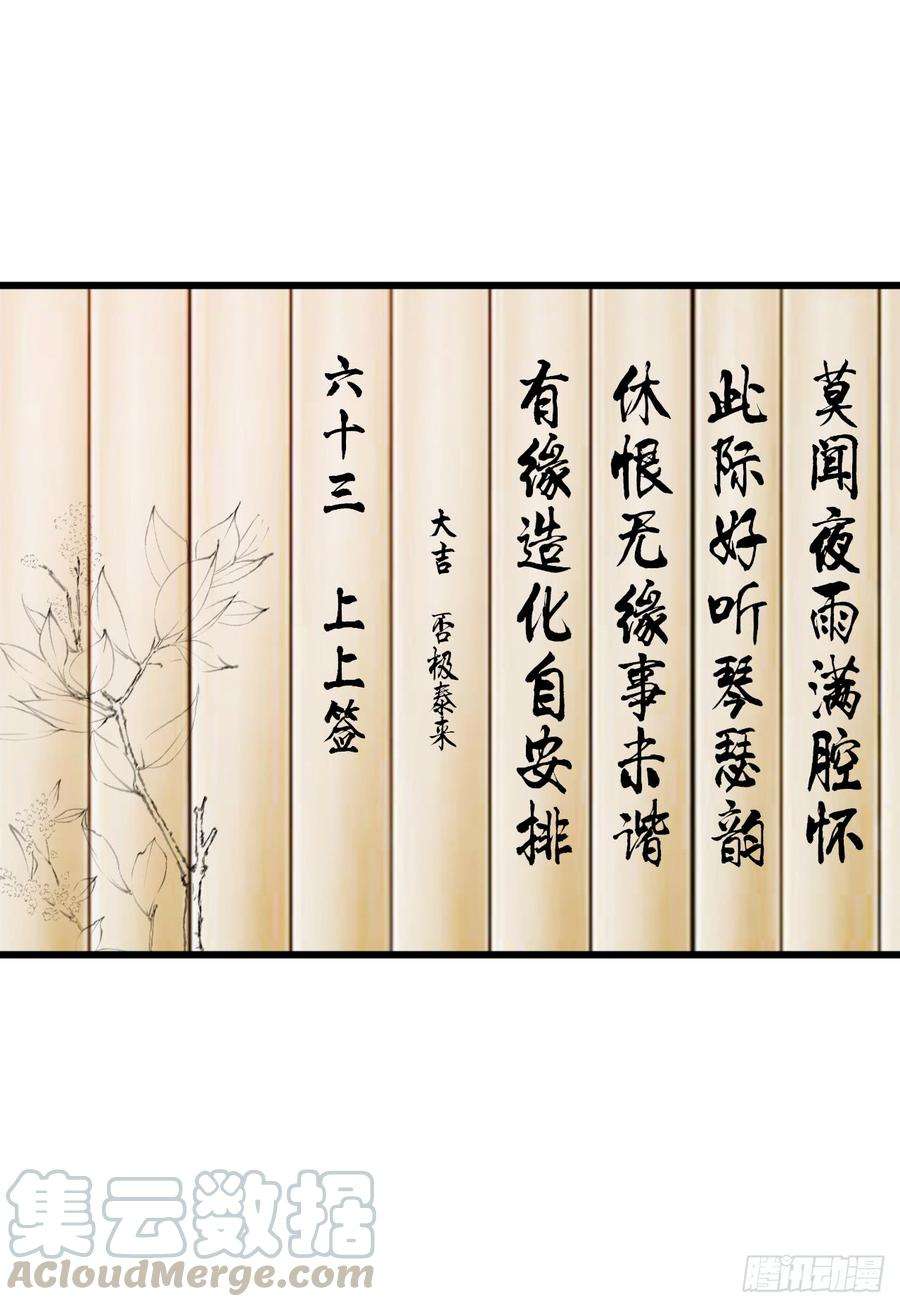 莫闻夜雨满腔怀
此际好听琴瑟韵
休恨无缘事未谐
有缘造化自安排
大吉 否极泰来
六十三 上上签
集云数据
AcloudMerge.com
腾讯动漫